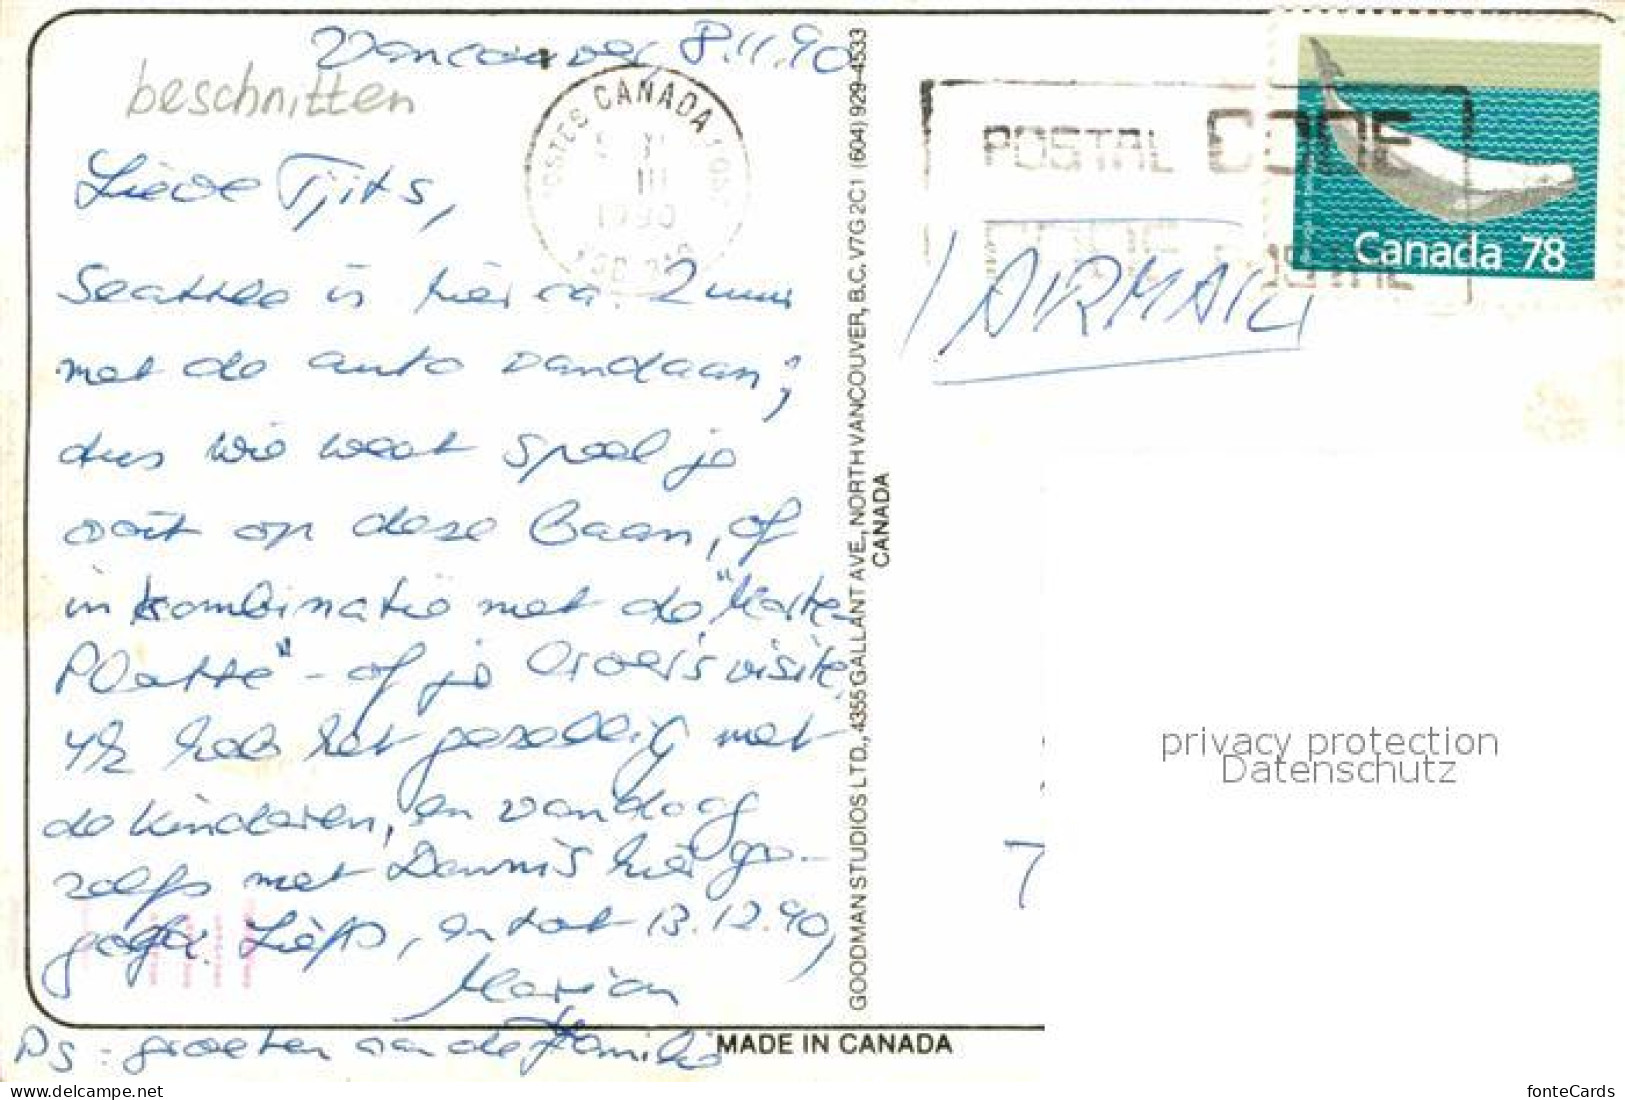 Vancouver, 8.11.90
beschnitten
Lieve Tjits,
Seattle is hier ca. 2 uur
met de auto vandaan;
dus wie weet speel je
ooit op deze Baan, of
in kombinatie met de "Korte
Platte" - of je Broer's visite.
Ik heb het gezellig met
de kinderen, en vandaag
zelfs met Dennis hier ge-
Liefs, en tot 13.12.90,
Marian
PS - groeten aan de Familie
POSTES CANADA
1990
POSTAL CODE
CODE POSTAL
Canada 78
AIRMAIL
GOODMAN STUDIOS LTD., 4355 GALLANT AVE., NORTH VANCOUVER, B.C. V7G 2C1 (604) 929-4533
CANADA
privacy protection
Datenschutz
7
MADE IN CANADA
www.delcampe.net
fonteCards